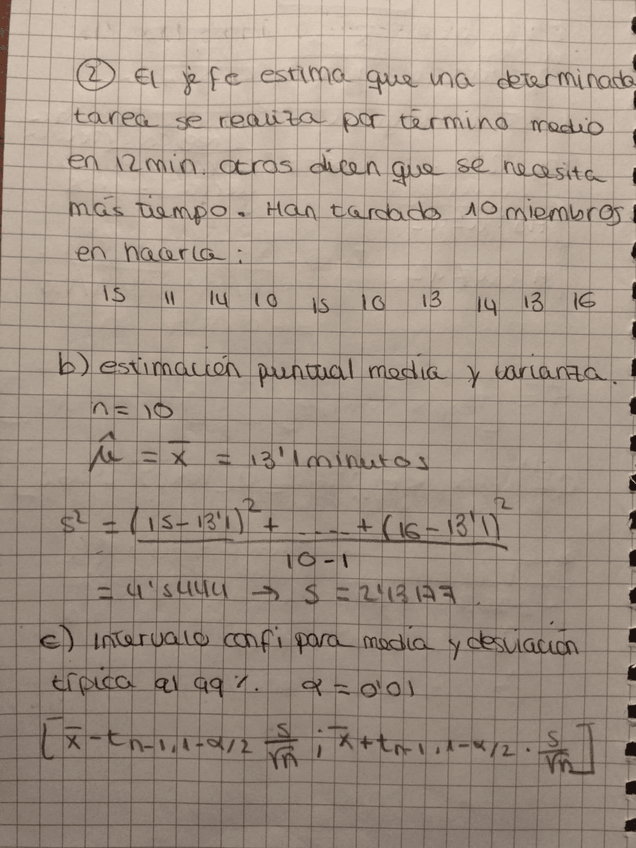 ② El jefe estima que una determinada
tarea se realiza por término medio
en 12 min. otros dicen que se necesita
más tiempo. Han tardado 10 miembros
en hacerla:
15 11 14 10 15 10 13 14 13 16
b) estimación puntual media y varianza.
n = 10
μ̂ = x̄ = 13'1 minutos
s² = (15-13'1)² + ..... + (16-13'1)²
10-1
= 4'5444 → s = 2'13177.
c) intervalo confi para media y desviación
típica al 99%. α = 0'01
[x̄ - tn-1, 1-α/2 s/√n ; x̄ + tn-1, 1-α/2 · s/√n]